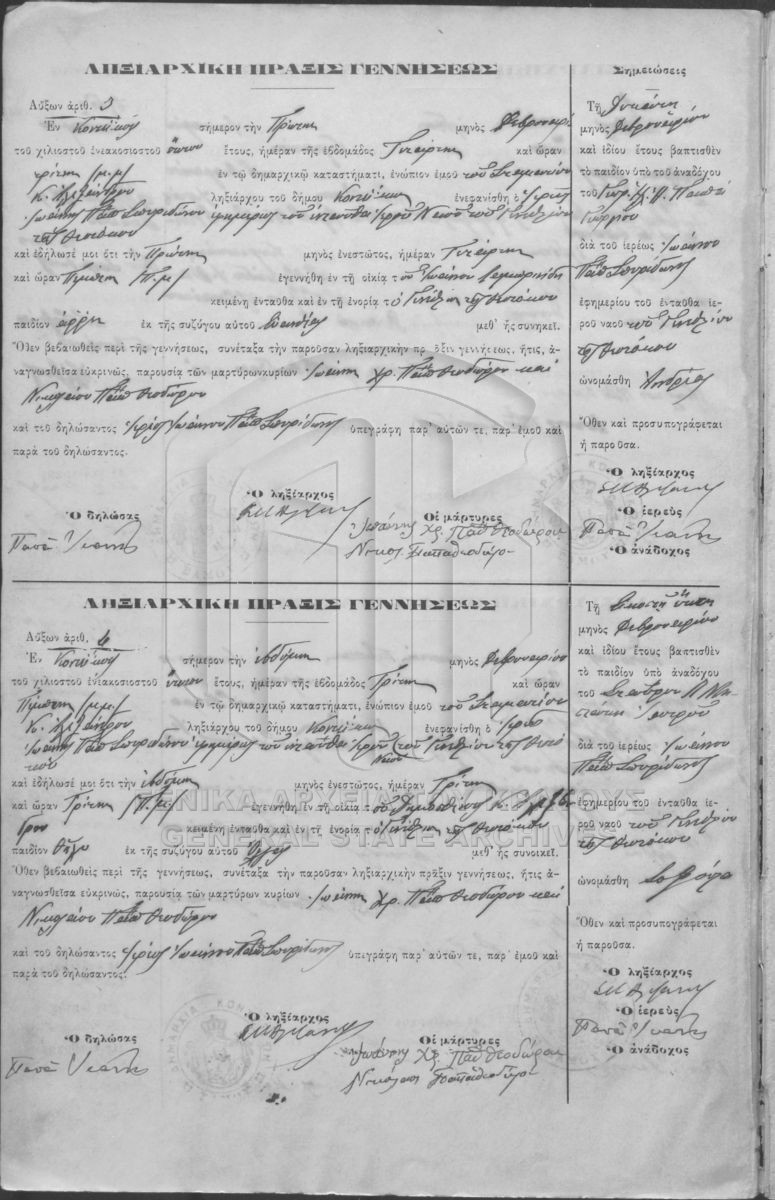 ΛΗΞΙΑΡΧΙΚΗ ΠΡΑΞΙΣ ΓΕΝΝΗΣΕΩΣ
Αὔξων ἀριθ. 3
Ἐν σήμερον τὴν Πρώτην μηνὸς
τοῦ χιλιοστοῦ ἐνεακοσιοστοῦ ἔτους, ἡμέραν τῆς ἑβδομάδος Τετάρτην καὶ ὥραν
τρίτην μ.μ. ἐν τῷ δημαρχικῷ καταστήματι, ἐνώπιον ἐμοῦ τοῦ Σταματίου
Κ. Ἀλεξάνδρου ληξιάρχου τοῦ δήμου ἐνεφανίσθη ὁ ἱερεὺς
Ἰωάννης Παπᾶ Σπυρίδωνος ἐφημέριος τοῦ ἐνταῦθα ἱεροῦ Ναοῦ τοῦ Γενεθλίου
τῆς Θεοτόκου
καὶ ἐδήλωσέ μοι ὅτι τὴν Πρώτην μηνὸς ἐνεστῶτος, ἡμέραν Τετάρτην
καὶ ὥραν Π.μ. ἐγεννήθη ἐν τῇ οἰκίᾳ τοῦ Ἰωάννου
κειμένῃ ἐνταῦθα καὶ ἐν τῇ ἐνορίᾳ τοῦ Γενεθλίου τῆς Θεοτόκου
παιδίον ἄρρεν ἐκ τῆς συζύγου αὐτοῦ μεθ᾽ ἧς συνηκεῖ.
Ὅθεν βεβαιωθεὶς περὶ τῆς γεννήσεως, συνέταξα τὴν παροῦσαν ληξιαρχικὴν πρᾶξιν γεννήσεως, ἥτις, ἀ-
ναγνωσθεῖσα εὐκρινῶς, παρουσίᾳ τῶν μαρτύρων κυρίων Ἰωάννη Χρ. Παπᾶ Θεοδώρου καὶ
Νικολάου Παπᾶ Θεοδώρου
καὶ τοῦ δηλώσαντος ἱερέως Ἰωάννου Παπᾶ Σπυρίδωνος ὑπεγράφη παρ᾽ αὐτῶν τε, παρ᾽ ἐμοῦ καὶ
παρὰ τοῦ δηλώσαντος.
Ὁ ληξίαρχος
Ὁ δηλώσας
Οἱ μάρτυρες
Παπᾶ Ἰωάννης
Ἰωάννης Χρ. Παπᾶ Θεοδώρου
Νικολ. Παπαθεοδώρου
Σημειώσεις
Τῇ
μηνὸς Φεβρουαρίου
καὶ ἰδίου ἔτους βαπτισθὲν
τὸ παιδίον ὑπὸ τοῦ ἀναδόχου
τοῦ
Γεωργίου
διὰ τοῦ ἱερέως Ἰωάννου
Παπᾶ Σπυρίδωνος
ἐφημερίου τοῦ ἐνταῦθα ἱε-
ροῦ ναοῦ τοῦ Γενεθλίου
τῆς Θεοτόκου
ὠνομάσθη Ἀνδρέας
Ὅθεν καὶ προσυπογράφεται
ἡ παροῦσα.
Ὁ ληξίαρχος
Ὁ ἱερεὺς
Παπᾶ Ἰωάννης
Ὁ ἀνάδοχος
ΛΗΞΙΑΡΧΙΚΗ ΠΡΑΞΙΣ ΓΕΝΝΗΣΕΩΣ
Αὔξων ἀριθ. 4
Ἐν σήμερον τὴν ἑβδόμην μηνὸς Φεβρουαρίου
τοῦ χιλιοστοῦ ἐνεακοσιοστοῦ ἔτους, ἡμέραν τῆς ἑβδομάδος Τρίτην καὶ ὥραν
μ.μ. ἐν τῷ δημαρχικῷ καταστήματι, ἐνώπιον ἐμοῦ τοῦ Σταματίου
Κ. Ἀλεξάνδρου ληξιάρχου τοῦ δήμου ἐνεφανίσθη ὁ ἱερεὺς
Ἰωάννης Παπᾶ Σπυρίδωνος ἐφημέριος τοῦ ἐνταῦθα ἱεροῦ Ναοῦ τοῦ Γενεθλίου τῆς Θεοτό
κου
καὶ ἐδήλωσέ μοι ὅτι τὴν ἑβδόμην μηνὸς ἐνεστῶτος, ἡμέραν Τρίτην
καὶ ὥραν Τρίτην Π.μ. ἐγεννήθη ἐν τῇ οἰκίᾳ τοῦ Κ. Ἀλεξάν
δρου κειμένῃ ἐνταῦθα καὶ ἐν τῇ ἐνορίᾳ τοῦ Γενεθλίου τῆς Θεοτόκου
παιδίον θῆλυ ἐκ τῆς συζύγου αὐτοῦ μεθ᾽ ἧς συνοικεῖ.
Ὅθεν βεβαιωθεὶς περὶ τῆς γεννήσεως, συνέταξα τὴν παροῦσαν ληξιαρχικὴν πρᾶξιν γεννήσεως, ἥτις ἀ-
ναγνωσθεῖσα εὐκρινῶς, παρουσίᾳ τῶν μαρτύρων κυρίων Ἰωάννη Χρ. Παπᾶ Θεοδώρου καὶ
Νικολάου Παπᾶ Θεοδώρου
καὶ τοῦ δηλώσαντος ἱερέως Ἰωάννου Παπᾶ Σπυρίδωνος ὑπεγράφη παρ᾽ αὐτῶν τε, παρ᾽ ἐμοῦ καὶ
παρὰ τοῦ δηλώσαντος.
Ὁ ληξίαρχος
Ὁ δηλώσας
Οἱ μάρτυρες
Παπᾶ Ἰωάννης
Ἰωάννης Χρ. Παπᾶ Θεοδώρου
Νικόλαος Παπαθεοδώρου
Τῇ
μηνὸς Φεβρουαρίου
καὶ ἰδίου ἔτους βαπτισθὲν
τὸ παιδίον ὑπὸ ἀναδόχου
τοῦ Σταύρου
διὰ τοῦ ἱερέως Ἰωάννου
Παπᾶ Σπυρίδωνος
ἐφημερίου τοῦ ἐνταῦθα ἱε-
ροῦ ναοῦ τοῦ Γενεθλίου
τῆς Θεοτόκου
ὠνομάσθη
Ὅθεν καὶ προσυπογράφεται
ἡ παροῦσα.
Ὁ ληξίαρχος
Ὁ ἱερεὺς
Παπᾶ Ἰωάννης
Ὁ ἀνάδοχος
ΓΕΝΙΚΑ ΑΡΧΕΙΑ ΤΟΥ ΚΡΑΤΟΥΣ
GENERAL STATE ARCHIVES